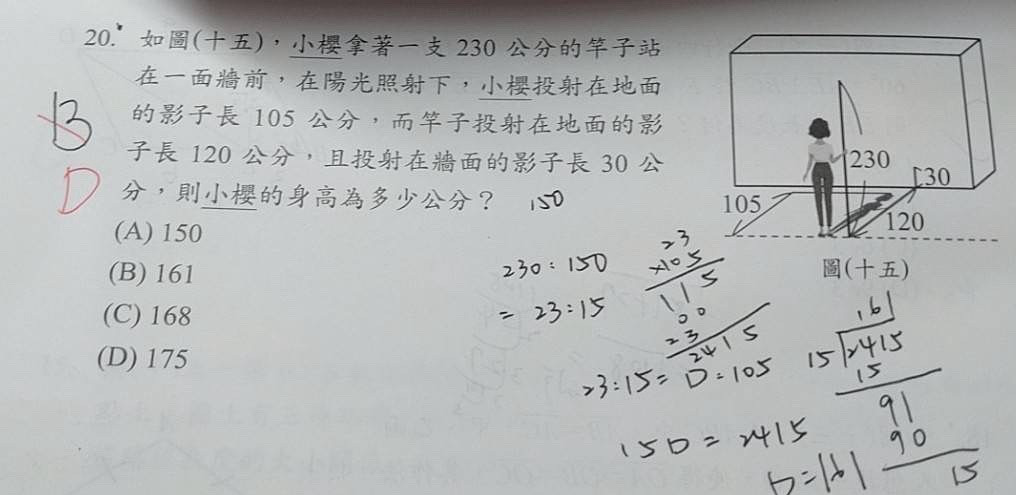 20. 如圖(十五)，小櫻拿著一支 230 公分的竿子站
在一面牆前，在陽光照射下，小櫻投射在地面
的影子長 105 公分，而竿子投射在地面的影
子長 120 公分，且投射在牆面的影子長 30 公
分，則小櫻的身高為多少公分？ 150
B
D
(A) 150
(B) 161
(C) 168
(D) 175
230
30
105
120
圖(十五)
230:150
= 23:15
23
×105
115
00
23
2415
23:15= D:105
15D = 2415
D=161
161
15 2415
15
91
90
15